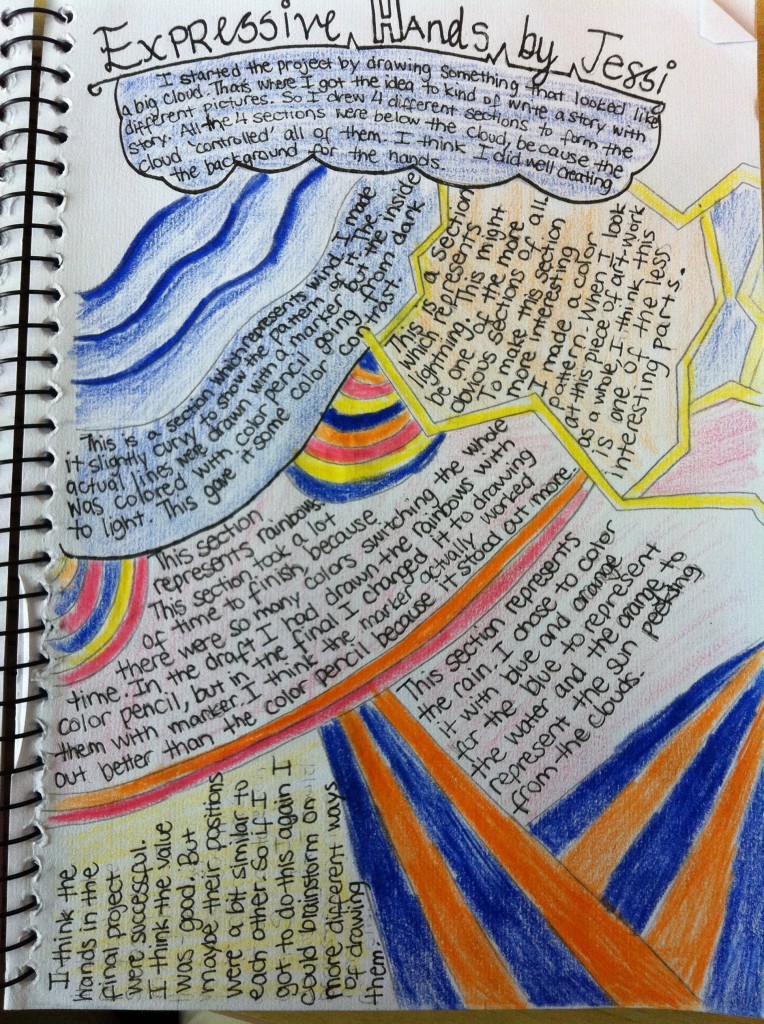 Expressive Hands by Jessi
I started the project by drawing something that looked like
a big cloud. Thats where I got the idea to kind of write a story with
different pictures. So I drew 4 different sections to form the
story. All the 4 sections were below the cloud, because the
cloud 'controlled' all of them. I think I did well creating
the background for the hands.
This is a section which represents wind. I made
it slightly curvy to show the pattern of it. The
actual lines were drawn with a marker but the inside
was colored with color pencil going from dark
to light. This gave it some color contrast.
This is a section
which represents
lightning. This might
be one of the more
obvious sections of all.
To make this section
more interesting
I made a color
pattern. When I look
at this piece of art-work
as a whole, I think this
is one of the less
interesting parts.
This section
represents rainbows.
This section took a lot
of time to finish, because
there were so many colors switching the whole
time. In the draft I had drawn the rainbows with
color pencil, but in the final I changed it to drawing
them with marker. I think the marker actually worked
out better than the color pencil because it stood out more.
This section represents
the rain. I chose to color
it with blue and orange
for the blue to represent
the water and the orange to
represent the sun peeking
from the clouds.
I think the
hands in the
final project
were successful.
I think the value
was good. But
maybe their positions
were a bit similar to
each other. So if I
got to do this again I
could brainstorm on
more different ways
of drawing
them.